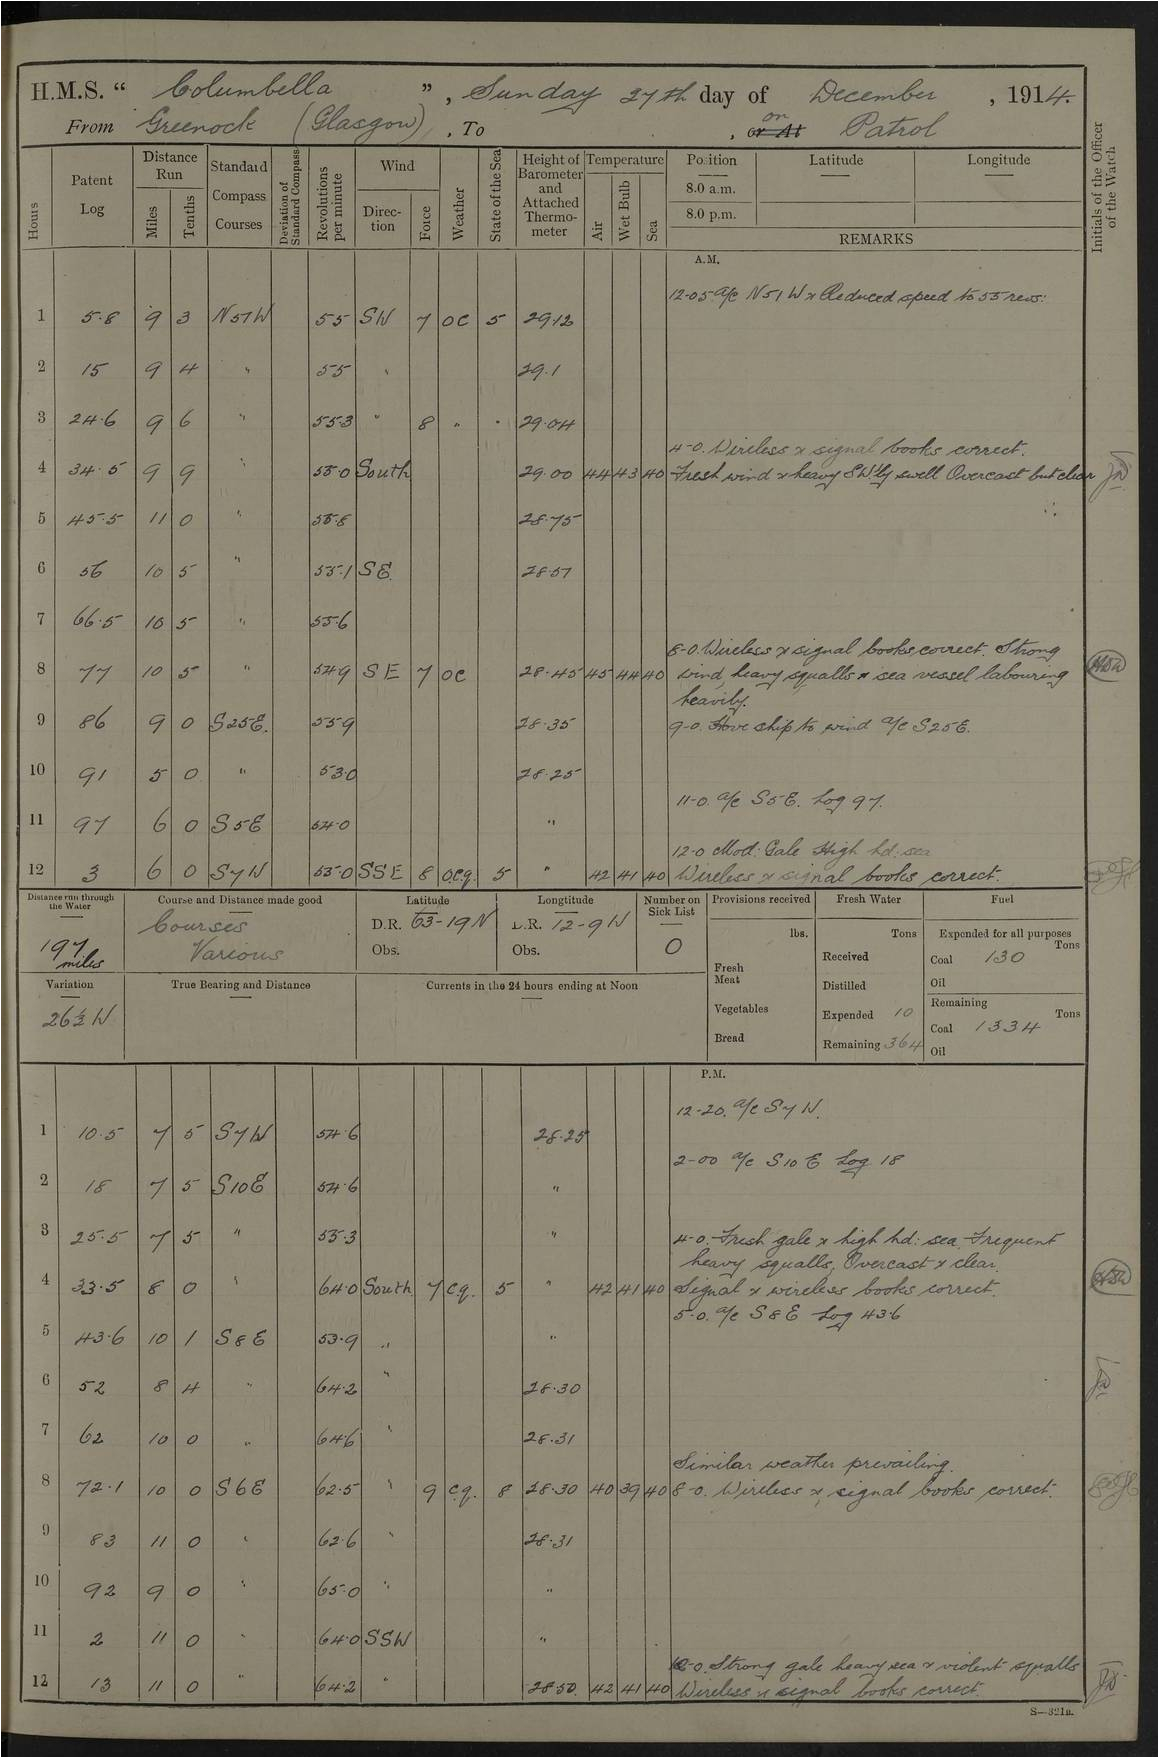 H.M.S. " Columbella ", Sunday 27th day of December , 1914.
From Greenock (Glasgow) , To , or At on Patrol
Hours
Patent Log
Distance Run
Miles
Tenths
Standard Compass Courses
Deviation of Standard Compass
Revolutions per minute
Wind
Direction
Force
Weather
State of the Sea
Height of Barometer and Attached Thermometer
Temperature
Air
Wet Bulb
Sea
Position
8.0 a.m.
8.0 p.m.
Latitude
Longitude
REMARKS
Initials of the Officer of the Watch
A.M.
12-05 a/c N51W & Reduced speed to 55 revs:
1 5.8 9 3 N51W 55 SW 7 oc 5 29.12
2 15 9 4 " 55 " 29.1
3 24.6 9 6 " 55.3 " 8 " " 29.04
4-0. Wireless & signal books correct.
4 34.5 9 9 " 55.0 South 29.00 44 43 40 Fresh wind & heavy SW'ly swell Overcast but clear
5 45.5 11 0 " 55.8 28.75
6 56 10 5 " 55.1 SE. 28.57
7 66.5 10 5 " 55.6
8-0. Wireless & signal books correct. Strong
8 77 10 5 " 54.9 SE 7 oc 28.45 45 44 40 wind, heavy squalls & sea vessel labouring
heavily.
9 86 9 0 S25E. 55.9 28.35 9-0. Hove ship to wind a/c S25E.
10 91 5 0 " 53.0 28.25
11-0. a/c S5E. Log 97.
11 97 6 0 S5E 54.0 "
12-0 Mod: Gale High hd: sea
12 3 6 0 S7W 53.0 SSE 8 ocq. 5 " 42 41 40 Wireless & signal books correct.
Distance run through the Water
197 miles
Course and Distance made good
Courses
Various
Latitude
D.R. 63-19N
Obs.
Longtitude
D.R. 12-9W
Obs.
Number on Sick List
0
Provisions received
lbs.
Fresh Meat
Vegetables
Bread
Fresh Water
Tons
Received
Distilled
Expended 10
Remaining 364
Fuel
Expended for all purposes
Tons
Coal 130
Oil
Remaining
Tons
Coal 1334
Oil
Variation
26½ W
True Bearing and Distance
Currents in the 24 hours ending at Noon
P.M.
12-20. a/c S7W.
1 10.5 7 5 S7W 54.6 28.25
2-00 a/c S10E Log 18
2 18 7 5 S10E 54.6 "
3 25.5 7 5 " 55.3 " 4-0. Fresh gale & high hd: sea. Frequent
heavy squalls, Overcast & clear.
4 33.5 8 0 " 64.0 South 7 cq. 5 " 42 41 40 Signal & wireless books correct.
5-0. a/c S8E Log 43.6
5 43.6 10 1 S8E 53.9 " "
6 52 8 4 " 64.2 " 28.30
7 62 10 0 " 64.6 " 28.31
Similar weather prevailing.
8 72.1 10 0 S6E 62.5 " 9 cq. 8 28.30 40 39 40 8-0. Wireless & signal books correct.
9 83 11 0 " 62.6 " 28.31
10 92 9 0 " 65.0 " "
11 2 11 0 " 64.0 SSW "
12-0. Strong gale heavy sea & violent squalls
12 13 11 0 " 64.2 " 28.50. 42 41 40 Wireless & signal books correct.
S—321a.